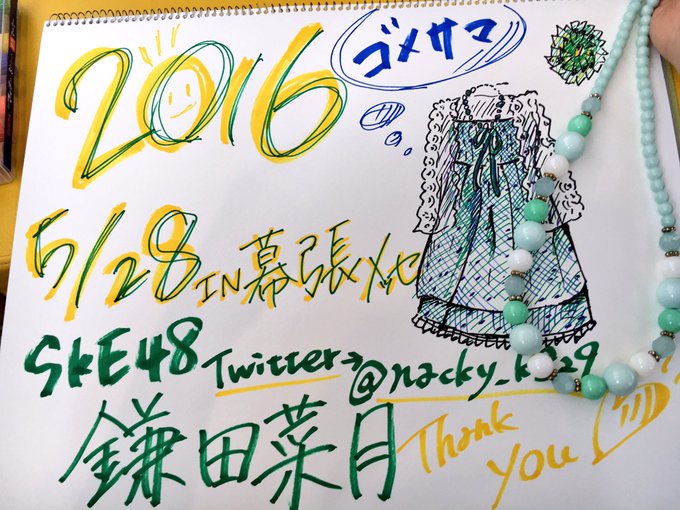 2016
ゴメサマ
5/28 IN 幕張メッセ
SKE48 Twitter→@nacky_k829
鎌田菜月
Thank
you